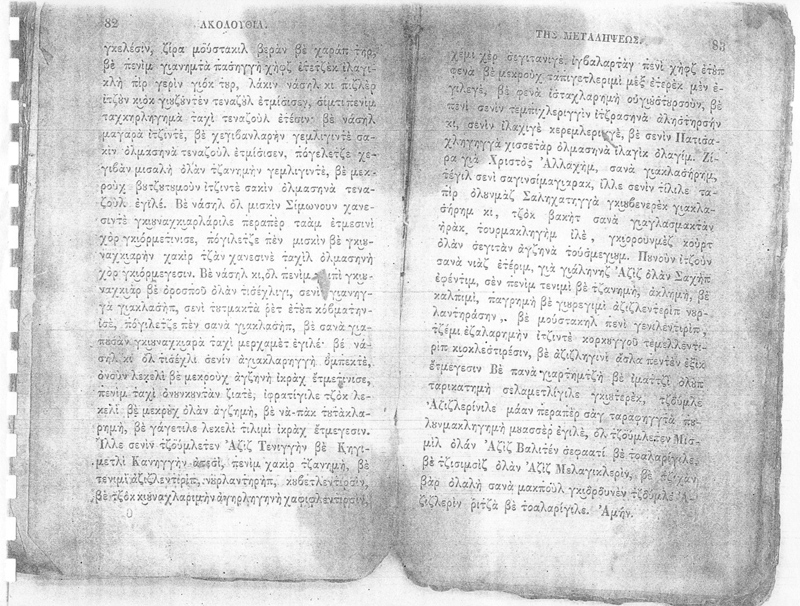 82 ΑΚΟΛΟΥΘΙΑ.
γκελέσιν, ζίρα μούστακιλ βεράν βὲ χαράπ τηρ,
βὲ πενὶμ γιανημτὰ πασηγγῆ χήφζ ἐτετζὲκ ἰλαγι-
κλῆ πὶρ γερὶν γιὸκ τυρ, λάκιν νάσηλ κι πιζλὲρ
ἰτζοὺν κιὸκ γιουζουντὲν τεναζοὺλ ἐτμίσισεγ, σίμτι πενὶμ
ταχκηρληγημὰ ταχὶ τεναζοὺλ ἐτέσιν· βὲ νάσηλ
μαγαρὰ ἰτζιντὲ, βὲ χεγιβανλαρὴν γεμλιγιντὲ σα-
κὶν ὀλμασηνὰ τεναζοὺλ ἐτμίσισεν, πόγελετζε χε-
γιβὰν μισαλὴ ὀλὰν τζανημὴν γεμλιγιντὲ, βὲ μεκ-
ροὺχ βυτζυτυμοὺν ἰτζιντὲ σακὶν ὀλμασηνὰ τενα-
ζοὺλ ἐγιλέ. Βὲ νάσηλ ὀλ μισκὶν Σίμωνουν χανε-
σιντὲ γκιουναχκιαρλάριλε περαπὲρ ταὰμ ἐτμεσινὶ
χὸρ γκιορμετινισε, πόγιλετζε πὲν μισκὶν βὲ γκιου-
ναχκιαρὴν χακὶρ τζὰν χανεσινὲ ταχὶλ ὀλμασηνῆ
χὸρ γκιορμεγεσιν. Βὲ νάσηλ κι, ὂλ πενὶμ κιπὶ γκιου-
ναχκιὰρ βὲ ὀροσποῦ ὀλὰν τισέχλιγι, σενὶν γιανηγ-
γὰ γιακλασὴπ, σενὶ τυτμακτὰ ρὲτ ἐτὺπ κὀβματην-
ισὲ, πόγιλετζε πὲν σανὰ γιακλασὴπ, βὲ σανὰ για-
πυσὰν γκιουναχκιαρὰ ταχὶ μερχαμὲτ ἐγιλέ· βὲ νά-
σηλ κὶ ὂλ τισέχλι σενὶν ἀγιακλαρηγγῆ ὀμπεκτὲ,
ὀνοὺν λεκελὶ βὲ μεκροὺχ ἀγζηνῆ ἰκρὰχ ἔτμετηνισε,
πενὶμ ταχὶ ὀνυνκυντὰν ζιατὲ, ἰφρατίγιλε τζὸκ λε-
κελὶ βὲ μεκρὺχ ὀλὰν ἀγζημῆ, βὲ νὰ-πὰκ τυτακλα-
ρημῆ, βὲ γάγετιλε λεκελὶ τιλιμὶ ἰκρὰχ ἔτμεγεσιν.
Ἴλλε σενὶν τζούμλετεν Ἀζὶζ Τενιγγὴν βὲ Κηγι-
μετλὶ Κανηγγὴν ἀτεσὶ, πενὶμ χακὶρ τζανημῆ, βὲ
τενιμὶ ἀζιζλεντιρὶπ, νυρλαντηρὴπ, κυβετλεντιρσὶν,
βὲ τζὸκ κιουναχλαριμὴν ἀγηρληγηνῆ χαφιφλεντιρσίν,
ΤΗΣ ΜΕΤΑΛΗΨΕΩΣ. 83
χέμι χὲρ σεγιτανιγὲ ἰγβαλαρτὰν πενὶ χήφζ ἐτὺπ
φενὰ βὲ μεκροὺχ ταπιγετλεριμὶ μὲξ ἐτερὲκ μὲν ἐ-
γιλεγὲ, βὲ φενὰ ἰσταχλαρημῆ οὐγιουστυρσοὺν, βὲ
πενὶ σενὶν τεμπιχλεριγγὶν ἰτζρασηνὰ ἀληστηρσὴν
κι, σενὶν ἰλαχιγὲ κερεμλεριγγὲ, βὲ σενὶν Πατισα-
χληγηγγὰ χισσετὰρ ὀλμασηνὰ ἰλαγὶκ ὀλαγὶμ. Ζί-
ρα γιὰ Χριστὸς Ἀλλαχὴμ, σανὰ γιακλασήρημ,
τέγιλ σενὶ σαγινσίμαγιαρακ, ἴλλε σενὶν τίλιλε τα-
πὶρ ὀλυνμὰζ Σαληχατηγγὰ γκιουβενερὲκ γιακλα-
σήρημ κι, τζὸκ βακὴτ σανὰ γιαγλασμακτὰν
ἠρὰκ τουρμακληγὴμ ἰλὲ, γκιορουνμὲζ κοὺρτ
ὀλὰν σεγιτὰν ἀγζηνὰ τούσμεγιυμ. Πυνοὺν ἰτζοὺν
σανὰ νιὰζ ἐτέριμ, γιὰ γιάληνηζ Ἀζὶζ ὀλὰν Σαχὴπ
ἐφέντιμ, σὲν πενὶμ τενιμὶ βὲ τζανημῆ, ἀκλημῆ, βὲ
καλπιμὶ, παγρημῆ βὲ γιουρεγιμὶ ἀζιζλεντερὶπ νυρ-
λαντηράσην, βὲ μούστακηλ πενὶ γενιλεντιρὶπ,
τζέμι ἐζαλαρημὴν ἰτζιντὲ κορκυγγοῦ τεμελλεντι-
ρὶπ κιοκλεστιρέσιν, βὲ ἀζιζληγινὶ ἄσλα πεντὲν ἐξὶκ
ἔτμεγεσιν Βὲ πανὰ γιαρτημτζῆ βὲ ἰματτζὶ ὀλὺπ
ταρικατημῆ σελαμετλίγιλε γκιουτερὲκ, τζούμλε
Ἀζιζλερίνιλε μάαν περαπὲρ σὰγ ταραφηγγτὰ πυ-
λυνμακλημὴ μυασσὲρ ἐγιλὲ, ὂλ τζούμλετεν Μισ-
μὶλ ὀλὰν Ἀζὶζ Βαλιτὲν σεφαατὶ βὲ τοαλαρίγιλε,
βὲ τζισιμσὶζ ὀλὰν Ἀζὶζ Μελαγικλερὶν, βὲ πζιχὰν
βὰρ ὀλαλῆ σανὰ μακποὺλ γκιορουνὲν τζούμλε Ἀ-
ζιζλερὶν ριτζὰ βὲ τοαλαρίγιλε. Ἀμήν.